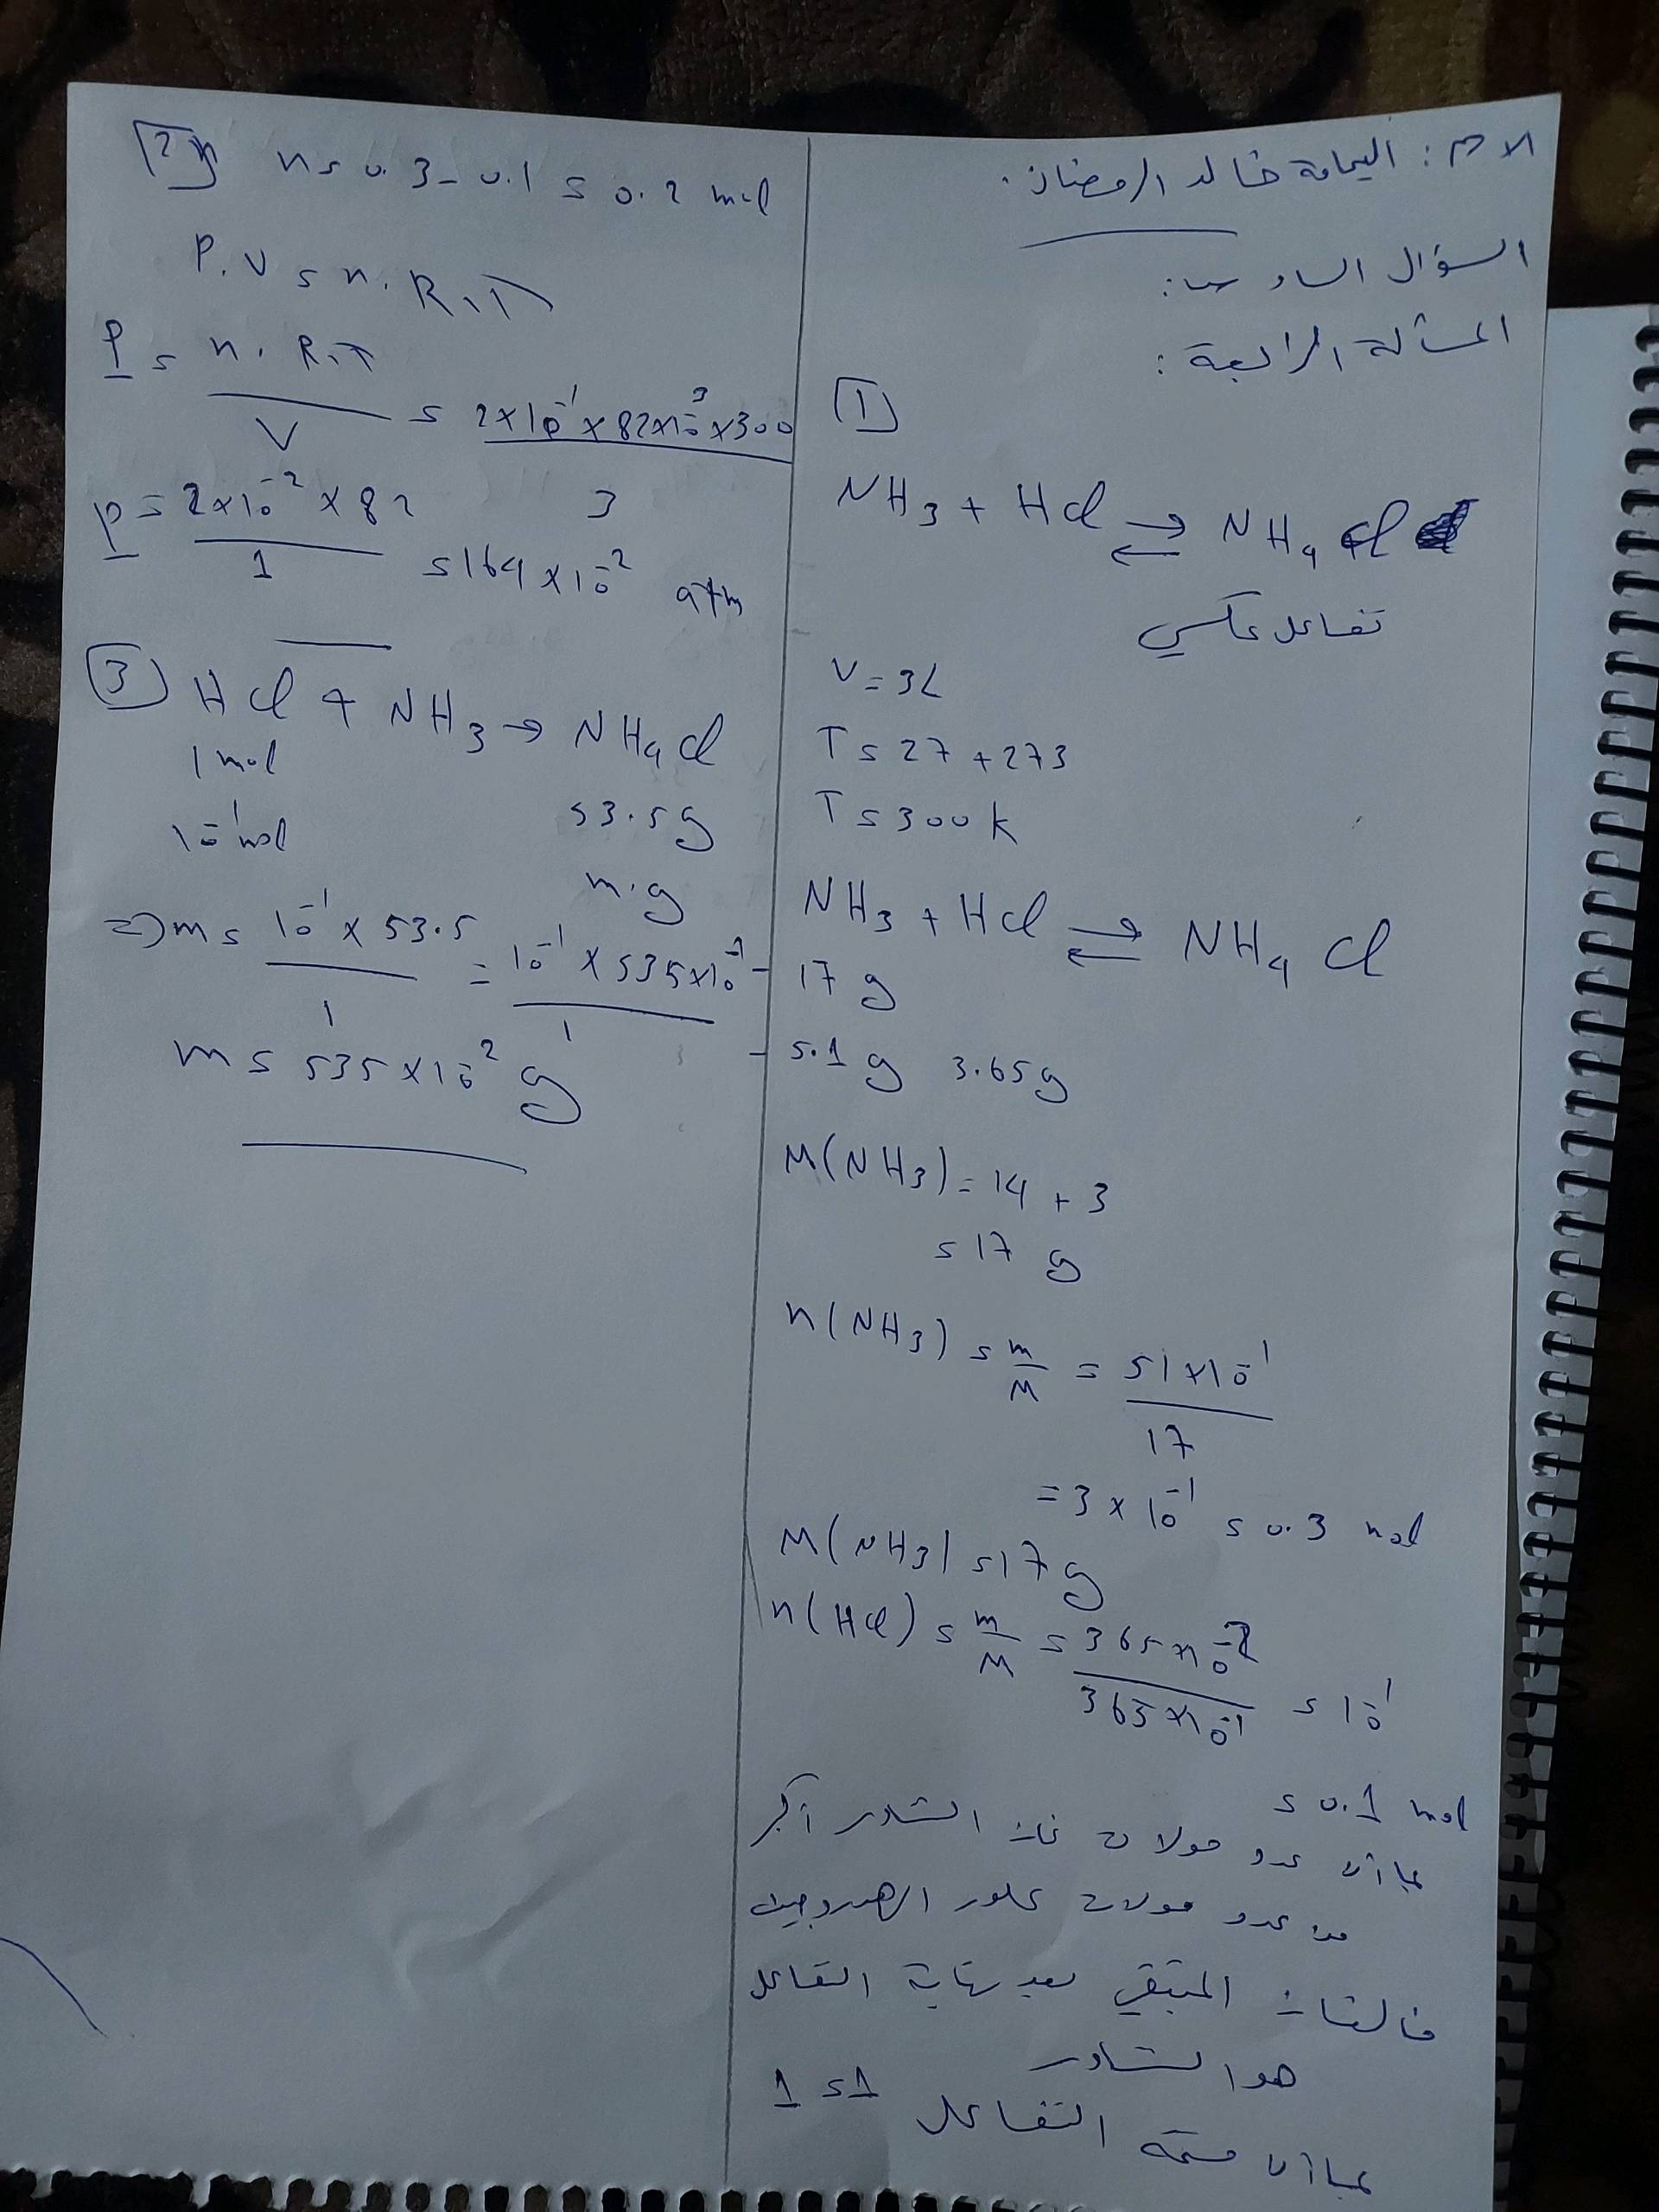 الاسم: اليمامة خالد الرمضان.
السؤال السادس:
المسألة الرابعة:
[1]
NH3 + HCl ⇌ NH4 Cl
تفاعل عكسي
V = 3L
T = 27 + 273
T = 300 K
NH3 + HCl ⇌ NH4 Cl
17 g
5.1 g 3.65 g
M(NH3) = 14 + 3
= 17 g
n(NH3) = m/M = 51×10⁻¹/17
= 3 × 10⁻¹ = 0.3 mol
M(NH3) = 17 g
n(HCl) = m/M = 365×10⁻²/365×10⁻¹ = 10⁻¹
= 0.1 mol
بما أن عدد مولات غاز النشادر أكبر
من عدد مولات كلور الهيدروجين
فالغاز المتبقي بعد نهاية التفاعل
هو النشادر
بما أن التفاعل 1 = 1
[2] n = 0.3 - 0.1 = 0.2 mol
P.V = n.R.T
P = n.R.T/V = 2×10⁻¹×82×10⁻³×300/3
P = 2×10⁻²×82/1 = 164×10⁻² atm
[3] HCl + NH3 → NH4Cl
1 mol 53.5 g
10⁻¹ mol m.g
⇒ m = 10⁻¹ × 53.5/1 = 10⁻¹ × 535×10⁻¹/1
m = 535×10⁻² g